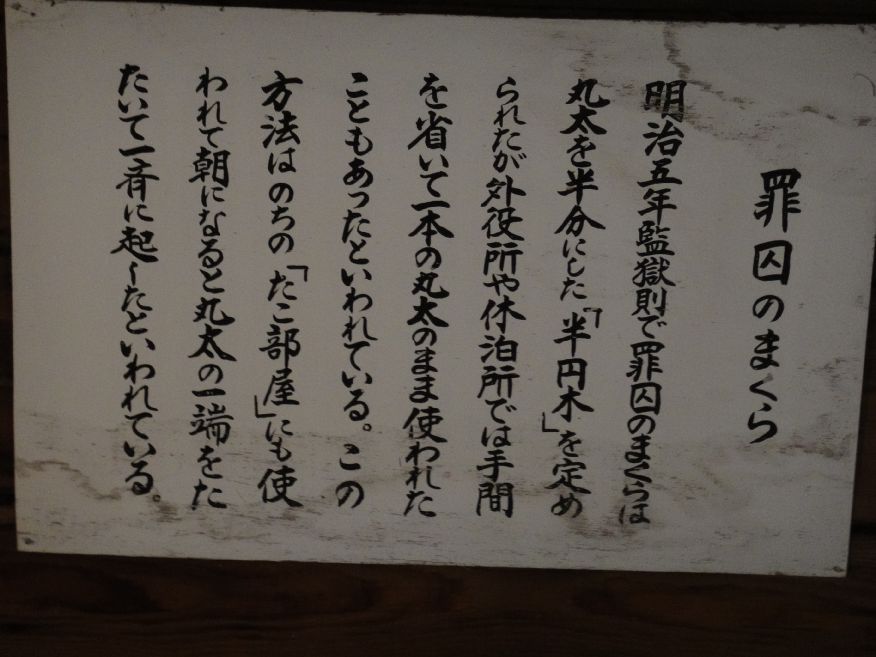 罪囚のまくら
明治五年監獄則で罪囚のまくらは
丸太を半分にした「半円木」を定め
られたが外役所や休泊所では手間
を省いて一本の丸太のまま使われた
こともあったといわれている。この
方法はのちの「たこ部屋」にも使
われて朝になると丸太の一端をた
たいて一斉に起したといわれている。